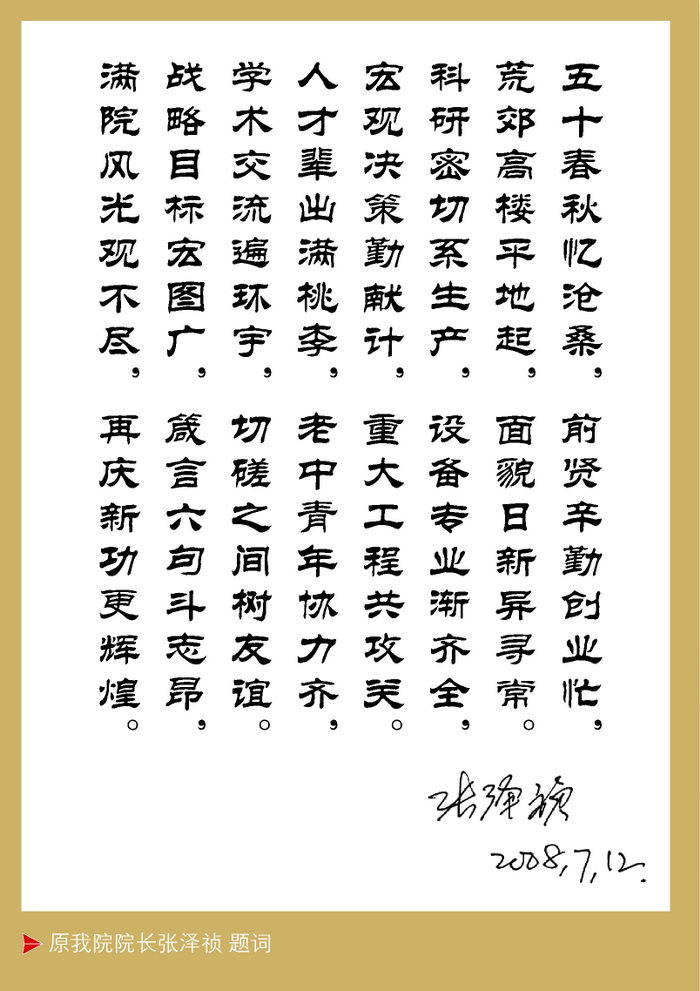 五十春秋忆沧桑，前贤辛勤创业忙，
荒郊高楼平地起，面貌日新异寻常。
科研密切系生产，设备专业渐齐全，
宏观决策勤献计，重大工程共攻关。
人才辈出满桃李，老中青年协力齐，
学术交流遍环宇，切磋之间树友谊。
战略目标宏图广，箴言六句斗志昂，
满院风光观不尽，再庆新功更辉煌。
张泽祯
2008,7,12.
原我院院长张泽祯 题词